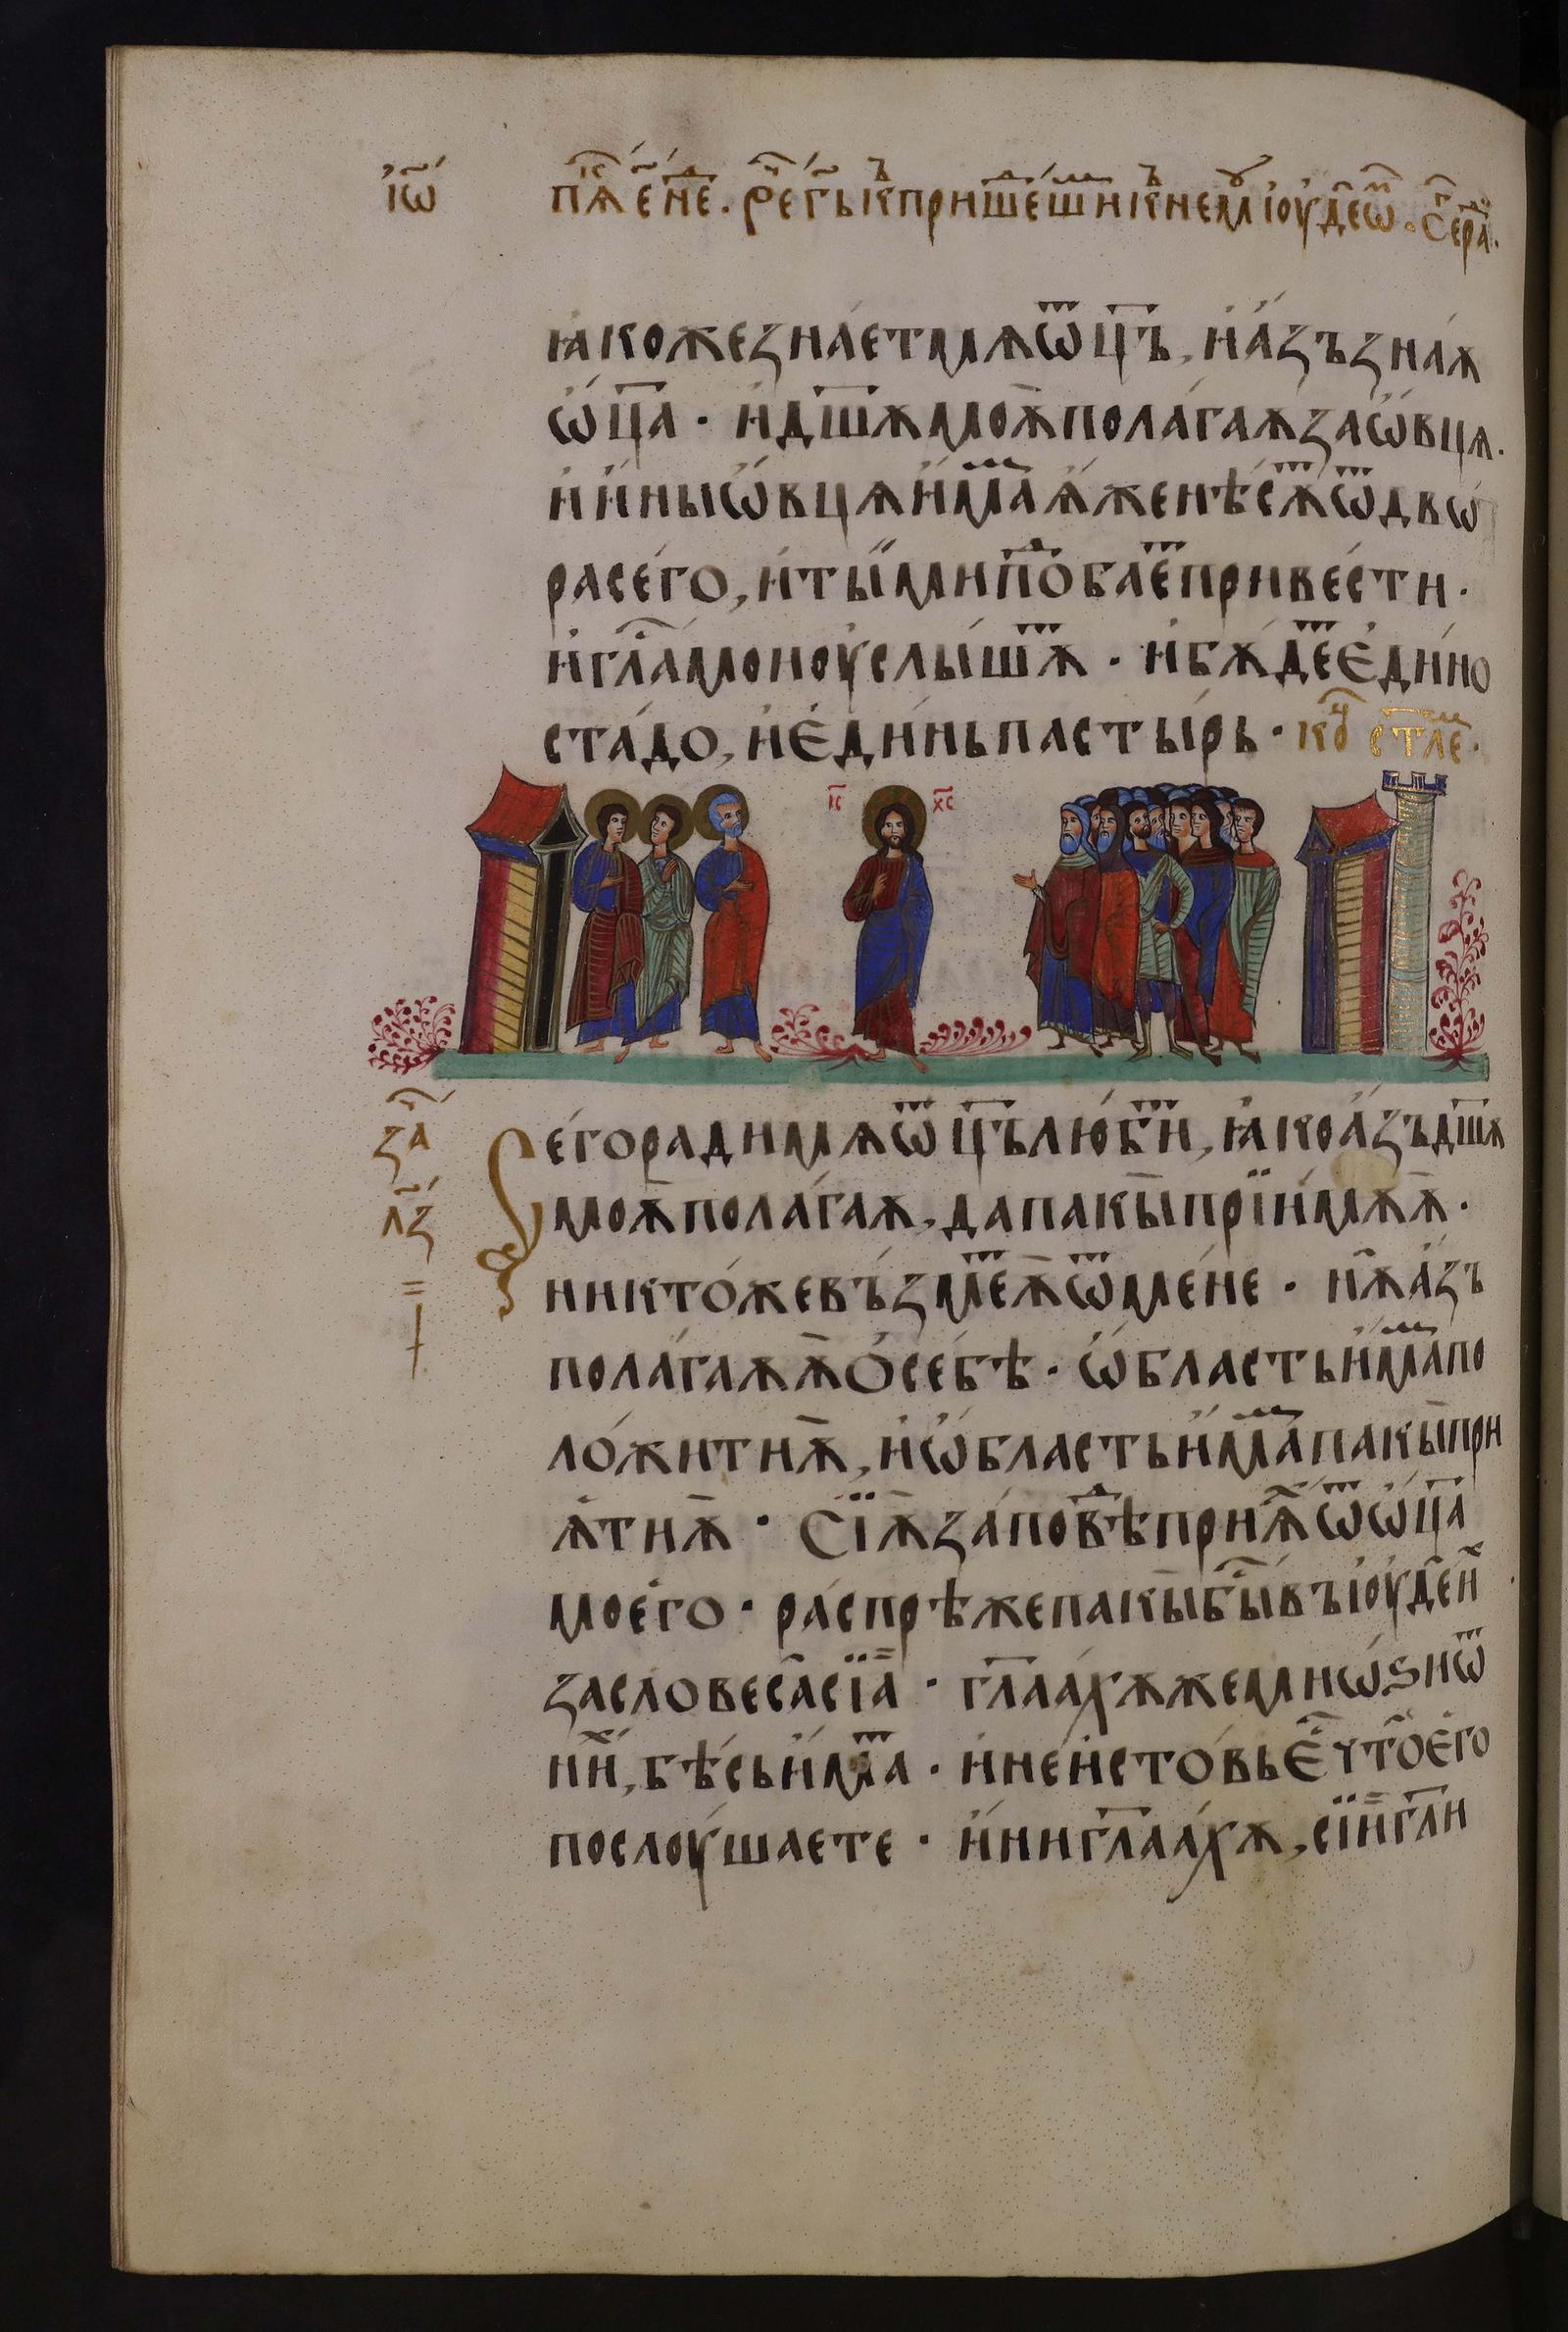 і҆ѡ҃
пѧ҃ е҃ не҃. рече г҃ь къ пришеⷣшиⷨ къ немꙋ іоудеѡⷨ. сера.
ꙗкоже знаетмѧѿц҃ъ, и҆а҆́зъзнаѫ
ѡ҆ц҃а · и҆дш҃ѫмоѫ̀полага́ѫзаѡ҆́вцѧ.
и҆и҆́ныѡ҆́вцѧи҆́маⷨѧ҆́женѣсѫⷮѿдвѡ
расего̀, и҆ты́ѝмипоⷣбаеⷮпривести ·
и҆гл҃амоноу҆слы́шѧⷮ · и҆бѫ́деⷮе҆ди́но
ста́до, и҆е҆ди́ньпастырь · коⷰ҇ стⷨле ·
і҃с х҃с
за҃
л҃з
Сего́радимѧѿц҃ълю́биⷮ, ꙗкоа҆́зъдш҃ѫ
моѫ̀полага́ѫ, дапакы̀прїи҆мѫѫ̀ ·
никто́жевъ́змеⷮѫ̀ѿмене · нѫ҆а҆́зъ
полага́ѫѫ̀ѡ҆себѣ · ѡ҆́бластьи҆́маⷨпо
ло́житиѫ̀, и҆ѡ҆́бластьи҆́маⷨпакы̀при
ѧ҆́тиѫ̀ · Сїѫ̀за́повѣⷣприѧⷯѿѡ҆ц҃а
моего̀ · ра́спрѣжепакы̀быⷭ҇въіоудеиⷯ
засловеса̀сїа̀ · гл҃аахѫжемнѡ́ѕиѿ
ниⷯ, бѣ́сьи҆́маⷮ · и҆неи҆сто́вьеⷭ҇҆чтоего̀
послоу́шаете · и҆́нигл҃аахѫ, сїи҆гл҃и